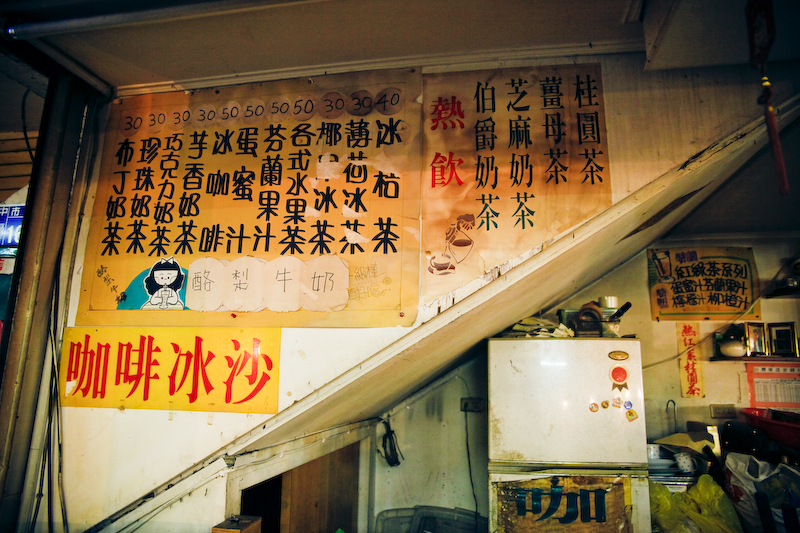 30 30 30 30 50 50 50 30 30 40
布丁奶茶
珍珠奶茶
巧克力奶茶
芋香奶茶
冰咖啡
蛋蜜汁
芬蘭果汁
各式水果茶
冰茶
薄荷冰茶
冰桔茶
酪梨牛奶
熱飲
伯爵奶茶
芝麻奶茶
薑母茶
桂圓茶
咖啡冰沙
紅綠茶系列
蛋蜜汁 芬蘭果汁
柳橙汁
桂圓茶
咖
中市